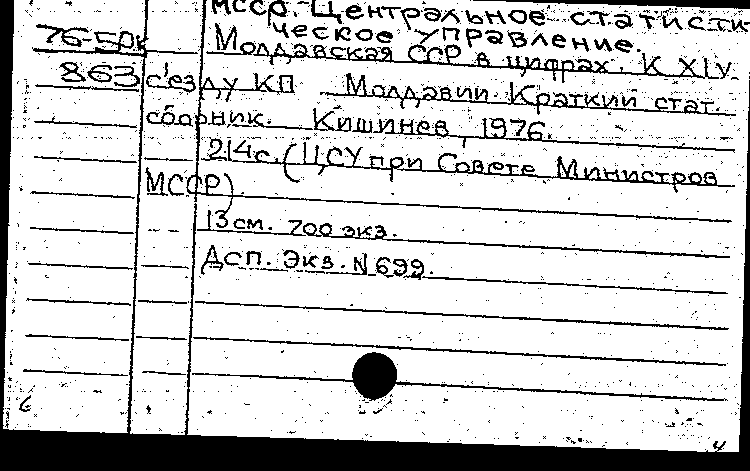 МССР. Центральное статисти-
ческое управление.
76-50к Молдавская ССР в цифрах. К XIV
863 с'езду КП Молдавии. Краткий стат.
сборник. Кишинев, 1976.
214с. (ЦСУ при Совете Министров
МССР)
13 см. 700 экз.
Дсп. Экз. N 699.
6
4